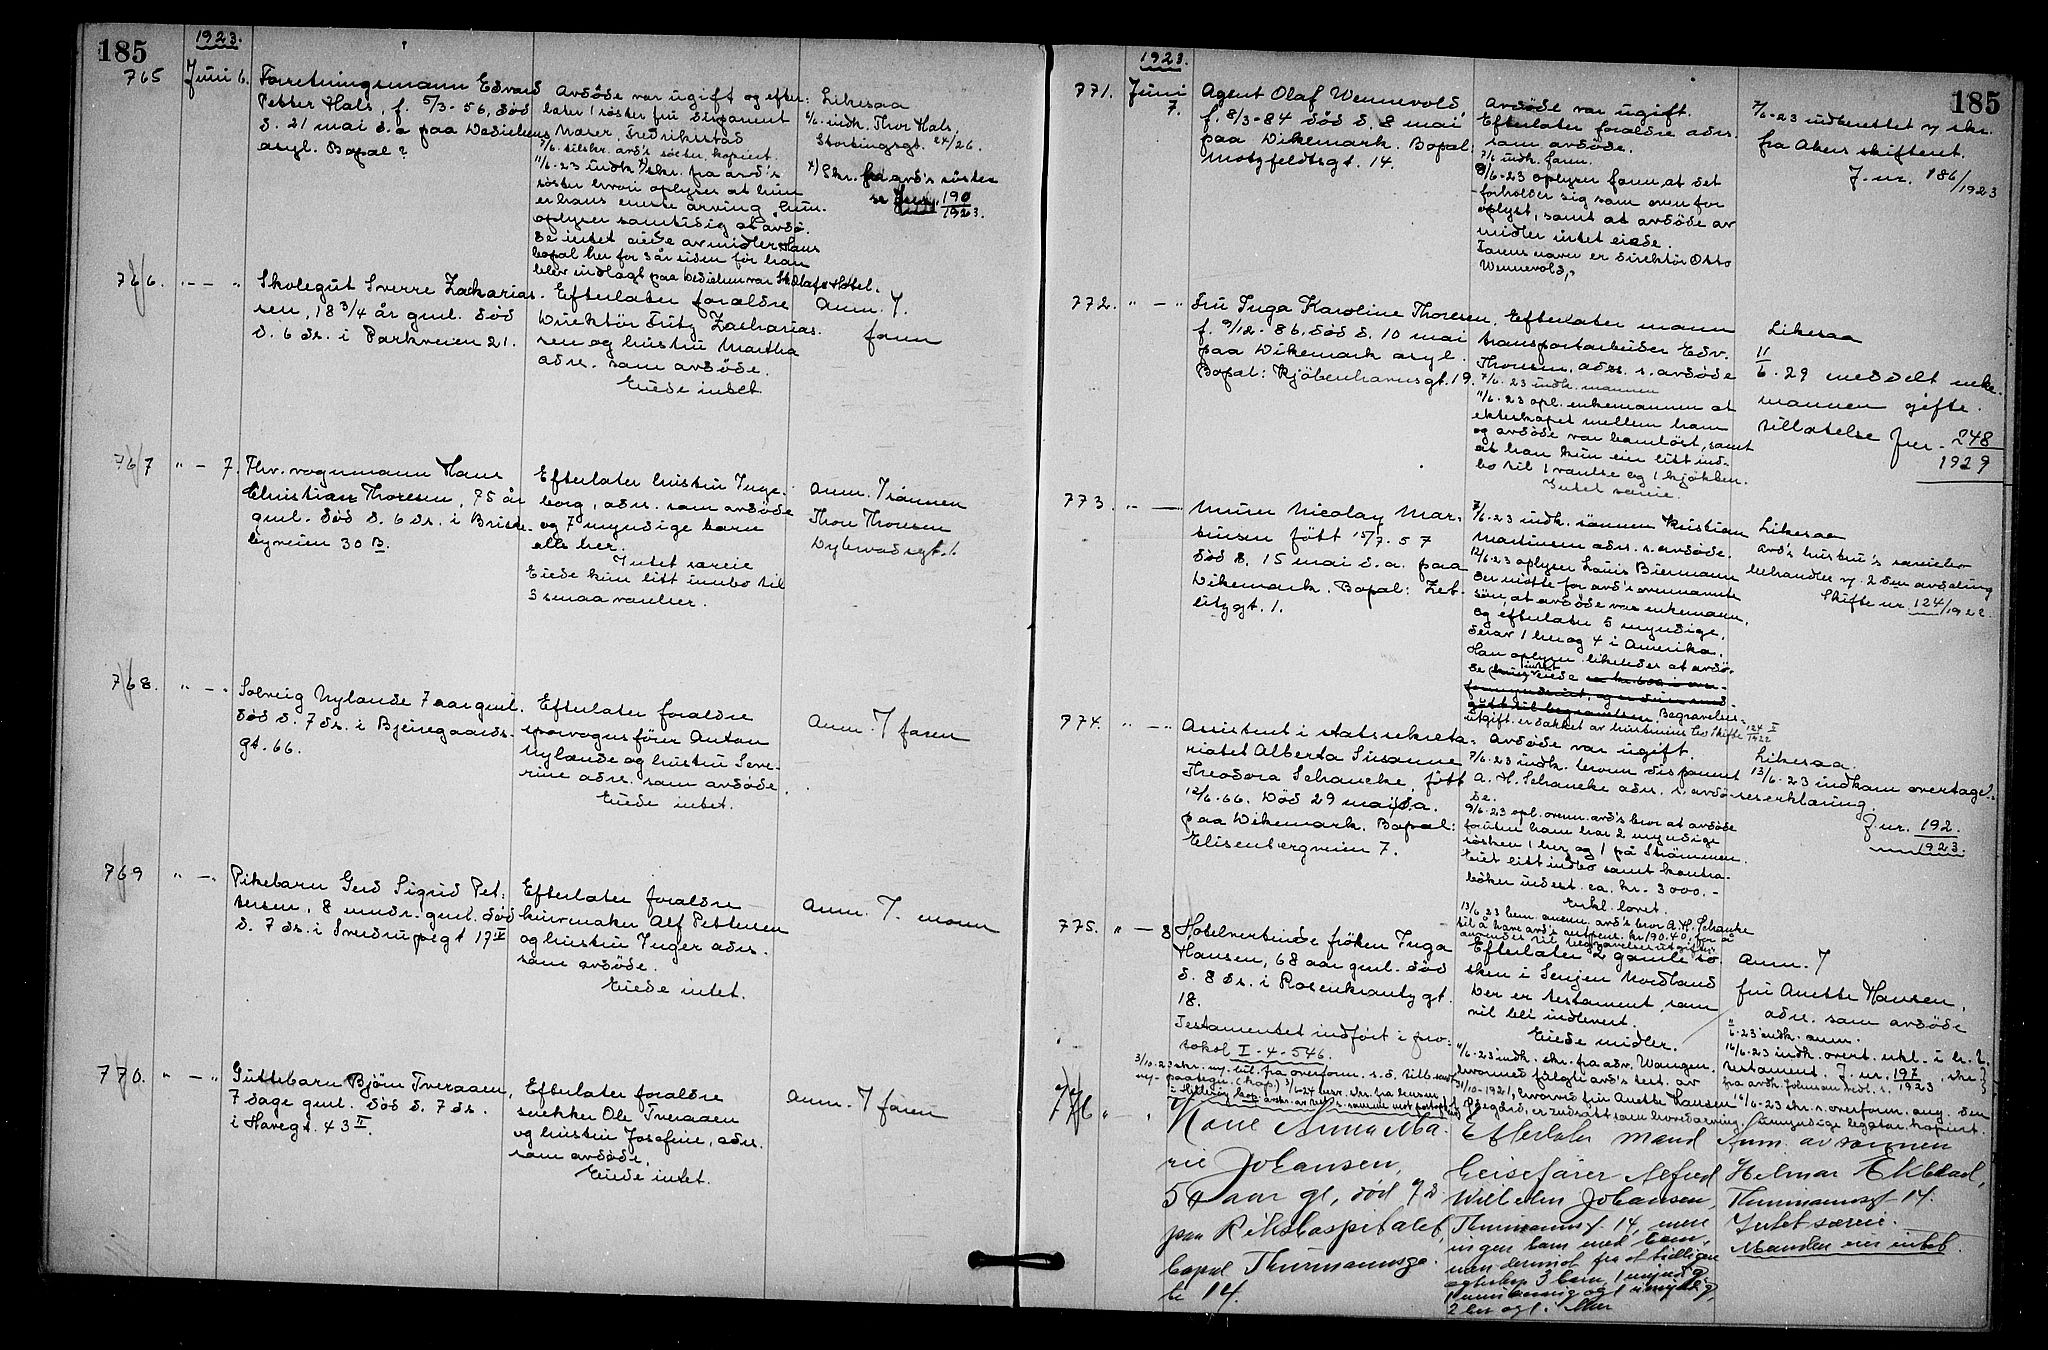 185
1923.
765
Juni 6.
Forretningsmann Edvard
Petter Hals, f. 5/3-56, död
d. 21 mai d.a paa Dedichens
asyl. Bopal?
Avdöde var ugift og efter:
later 1 söster fru Disponent
Narer, Fredriksstad
7/6 tilskr. avd's söster kopiert.
11/6-23 indk. x) skr. fra avd's
söster hvori oplyses at hun
er hans eneste arving. Hun
oplyser samtidig at avdö-
de intet eiede av midler. Hans
bopal her for 3 år siden för han
blev indlagt paa Dedichen var St. Olafs Hotel.
Likesaa
6/6 indk. Thor Hals,
Stortingsgt. 24/26.
x) Skr. fra avd's söster
se J.nr. 190/1923.
766.
" - "
Skolegut Sverre Zacharias-
sen, 18 3/4 år gml. död
d. 6 ds. i Parkveien 21.
Efterlater foraldre
Direktör Fritz Zacharias-
sen og hustru Martha
adr. som avdöde.
Eiede intet.
Anm. 7.
faren
767
" - 7.
Fhv. vognmann Hans
Christian Thoresen, 75 år
gml. död d. 6 ds. i Briske-
byveien 30 B.
Efterlater hustru Inge-
borg, adr. som avdöde
og 7 myndige barn
alle her.
Intet særeie
Eiede kun litt innbo til
3 smaa vanher.
Anm. 7 sönnen
Thore Thoresen
Dybwadsgt. 1.
768.
" - "
Solveig Nylande 7 aar gml.
död d. 7 ds. i Bjerregaards-
gt. 66.
Efterlater foraldre
sporvognsförer Anton
Nylænde og hustru Seve-
rine adr. som avdöde.
Eiede intet.
Anm. 7 faren
769
" - "
Pikebarn Gerd Sigrid Pet-
tersen, 8 mndr. gml. död
d. 7 ds. i Sverdrupsgt 17 II
Efterlater foraldre
kurvmaker Alf Pettersen
og hustru Inger adr.
som avdöde.
Eiede intet.
Anm. 7. moren
770.
" - "
Guttebarn Björn Tveraaen,
7 dage gml. död d. 7 ds.
i Havegt. 43 II.
Efterlater foraldre
snekker Ole Tveraaen
og hustru Josefine, adr.
som avdöde.
Eiede intet.
Anm. 7 faren
185
1923.
771.
Juni 7.
Agent Olaf Wennevold,
f. 8/3-84 död d. 8 mai
paa Dikemark. Bopal:
Motzfeldtsgt. 14.
Avdöde var ugift.
Efterlater foraldre adr.
som avdöde.
7/6 indk. faren.
8/6-23 oplyser faren, at det
forholder sig som oven for
oplyst, samt at avdöde av
midler intet eiede.
Farens navn er direktör Otto
Wennevold.
7/6-23 indberettet ny skr.
fra Akers skifteret.
J.nr. 186/1923
772.
" - "
Fru Inga Karoline Thoresen,
f. 9/12-86, död d. 10 mai
paa Dikemark asyl.
Bopal: Kjöbenhavnsgt. 19.
Efterlater mann
transportarbeider Edv.
Thoresen, adr. s. avdöde
7/6-23 indk. mannen
11/6-23 opl. enkemannen at
ekteskapet mellem ham
og avdöde var barnlöst, samt
at han kun eier litt ind-
bo til 1 værelse og 1 kjökken.
Intet særeie.
Likesaa
11/6-29 meddelt enke-
mannen gifte-
tillatelse Jnr. 248/1929
773.
" - "
Murer Nicolay Mar-
tinsen född 15/7.57
död d. 15 mai d.a. paa
Dikemark. Bopal: Zet-
litzgt. 1.
7/6-23 indk. sönnen Kristian
Martinsen adr. s. avdöde.
12/6-23 oplyser Louis Biermann
der mötte for avd's ovennævnte
sön, at avdöde var enkemann,
og efterlater 5 myndige,
derav 1 her og 4 i Amerika.
Han oplyser likeledes at avdö-
de intet eiede
Begravelses-
utgift. er dækket av hustruens bo skifte 124/1922 II
Likesaa
avd's hustru's særeiebo
behandles v. 2den avdeling
Skifte nr. 124/1922.
774.
" - "
Assistent i statssekreta-
riatet Alberta Susanne
Theodora Schancke, född
12/6.66. Död 29 mai d.a.
paa Dikemark. Bopal:
Elisenbergveien 7.
Avdöde var ugift.
7/6-23 indk. broren disponent
A. H. Schancke adr. s. avdö-
de.
9/6-23 opl. ovenn. avd's bror at avdöde
foruten ham har 2 myndige
söskn 1 her og 1 på Strömmen.
Eiet litt indbo samt kontra-
böker indest. ca. kr. 3000.-
Erkl. lovet.
13/6 23 bem. avd's bror A.H. Schancke
til å hæve avd's kr 190.40, for å
anvendes til begravelsesutgifter.
Likesaa.
13/6-23 indkom overtagel-
seserklæring.
J.nr. 192./1923.
775.
" - 8
Hotelvertinde fröken Inga
Hansen, 68 aar gml. död
d. 8 ds. i Rosenkrantzgt.
18.
Testamentet indfört i pro-
tokol I-4-546.
Efterlater 2 gamle sö-
sken i Senjen Nordland
Der er testament, som
vil bli indlevert.
Eiede midler.
11/6-23 indk. skr. fra adv. Wangen,
hvormed fulgte avd's test. av
31/10-1921, hvorved fru Anette Hansen
er indsatt som hovedarving.
Anm. 7
fru Anette Hansen,
adr. som avdöde
11/6-23 indk. anm.
16/6-23 indk. overt. erkl. i h.t.
testament. J.nr. 197/1923
16/6-23 skr. t. overform. ang. den
umyndige legatar. kopiert.
776
" - "
Kone Anna Ma-
rie Johansen,
54 aar gl, död 7 ds
paa Rikshospitalet,
bopal Thurmannsga-
te 14.
Efterlater mand
heisefører Alfred
Wilhelm Johansen,
Thurmannsgt. 14, men
ingen barn med ham,
men derimot fra et tidligere
egteskap 3 barn, 1 myndig
1 umyndig,
2 her og 1 i Aker
Anm. av sønnen
Helmar Ekblad,
Thurmannsgt 14.
Intet særeie.
Manden eier intet.